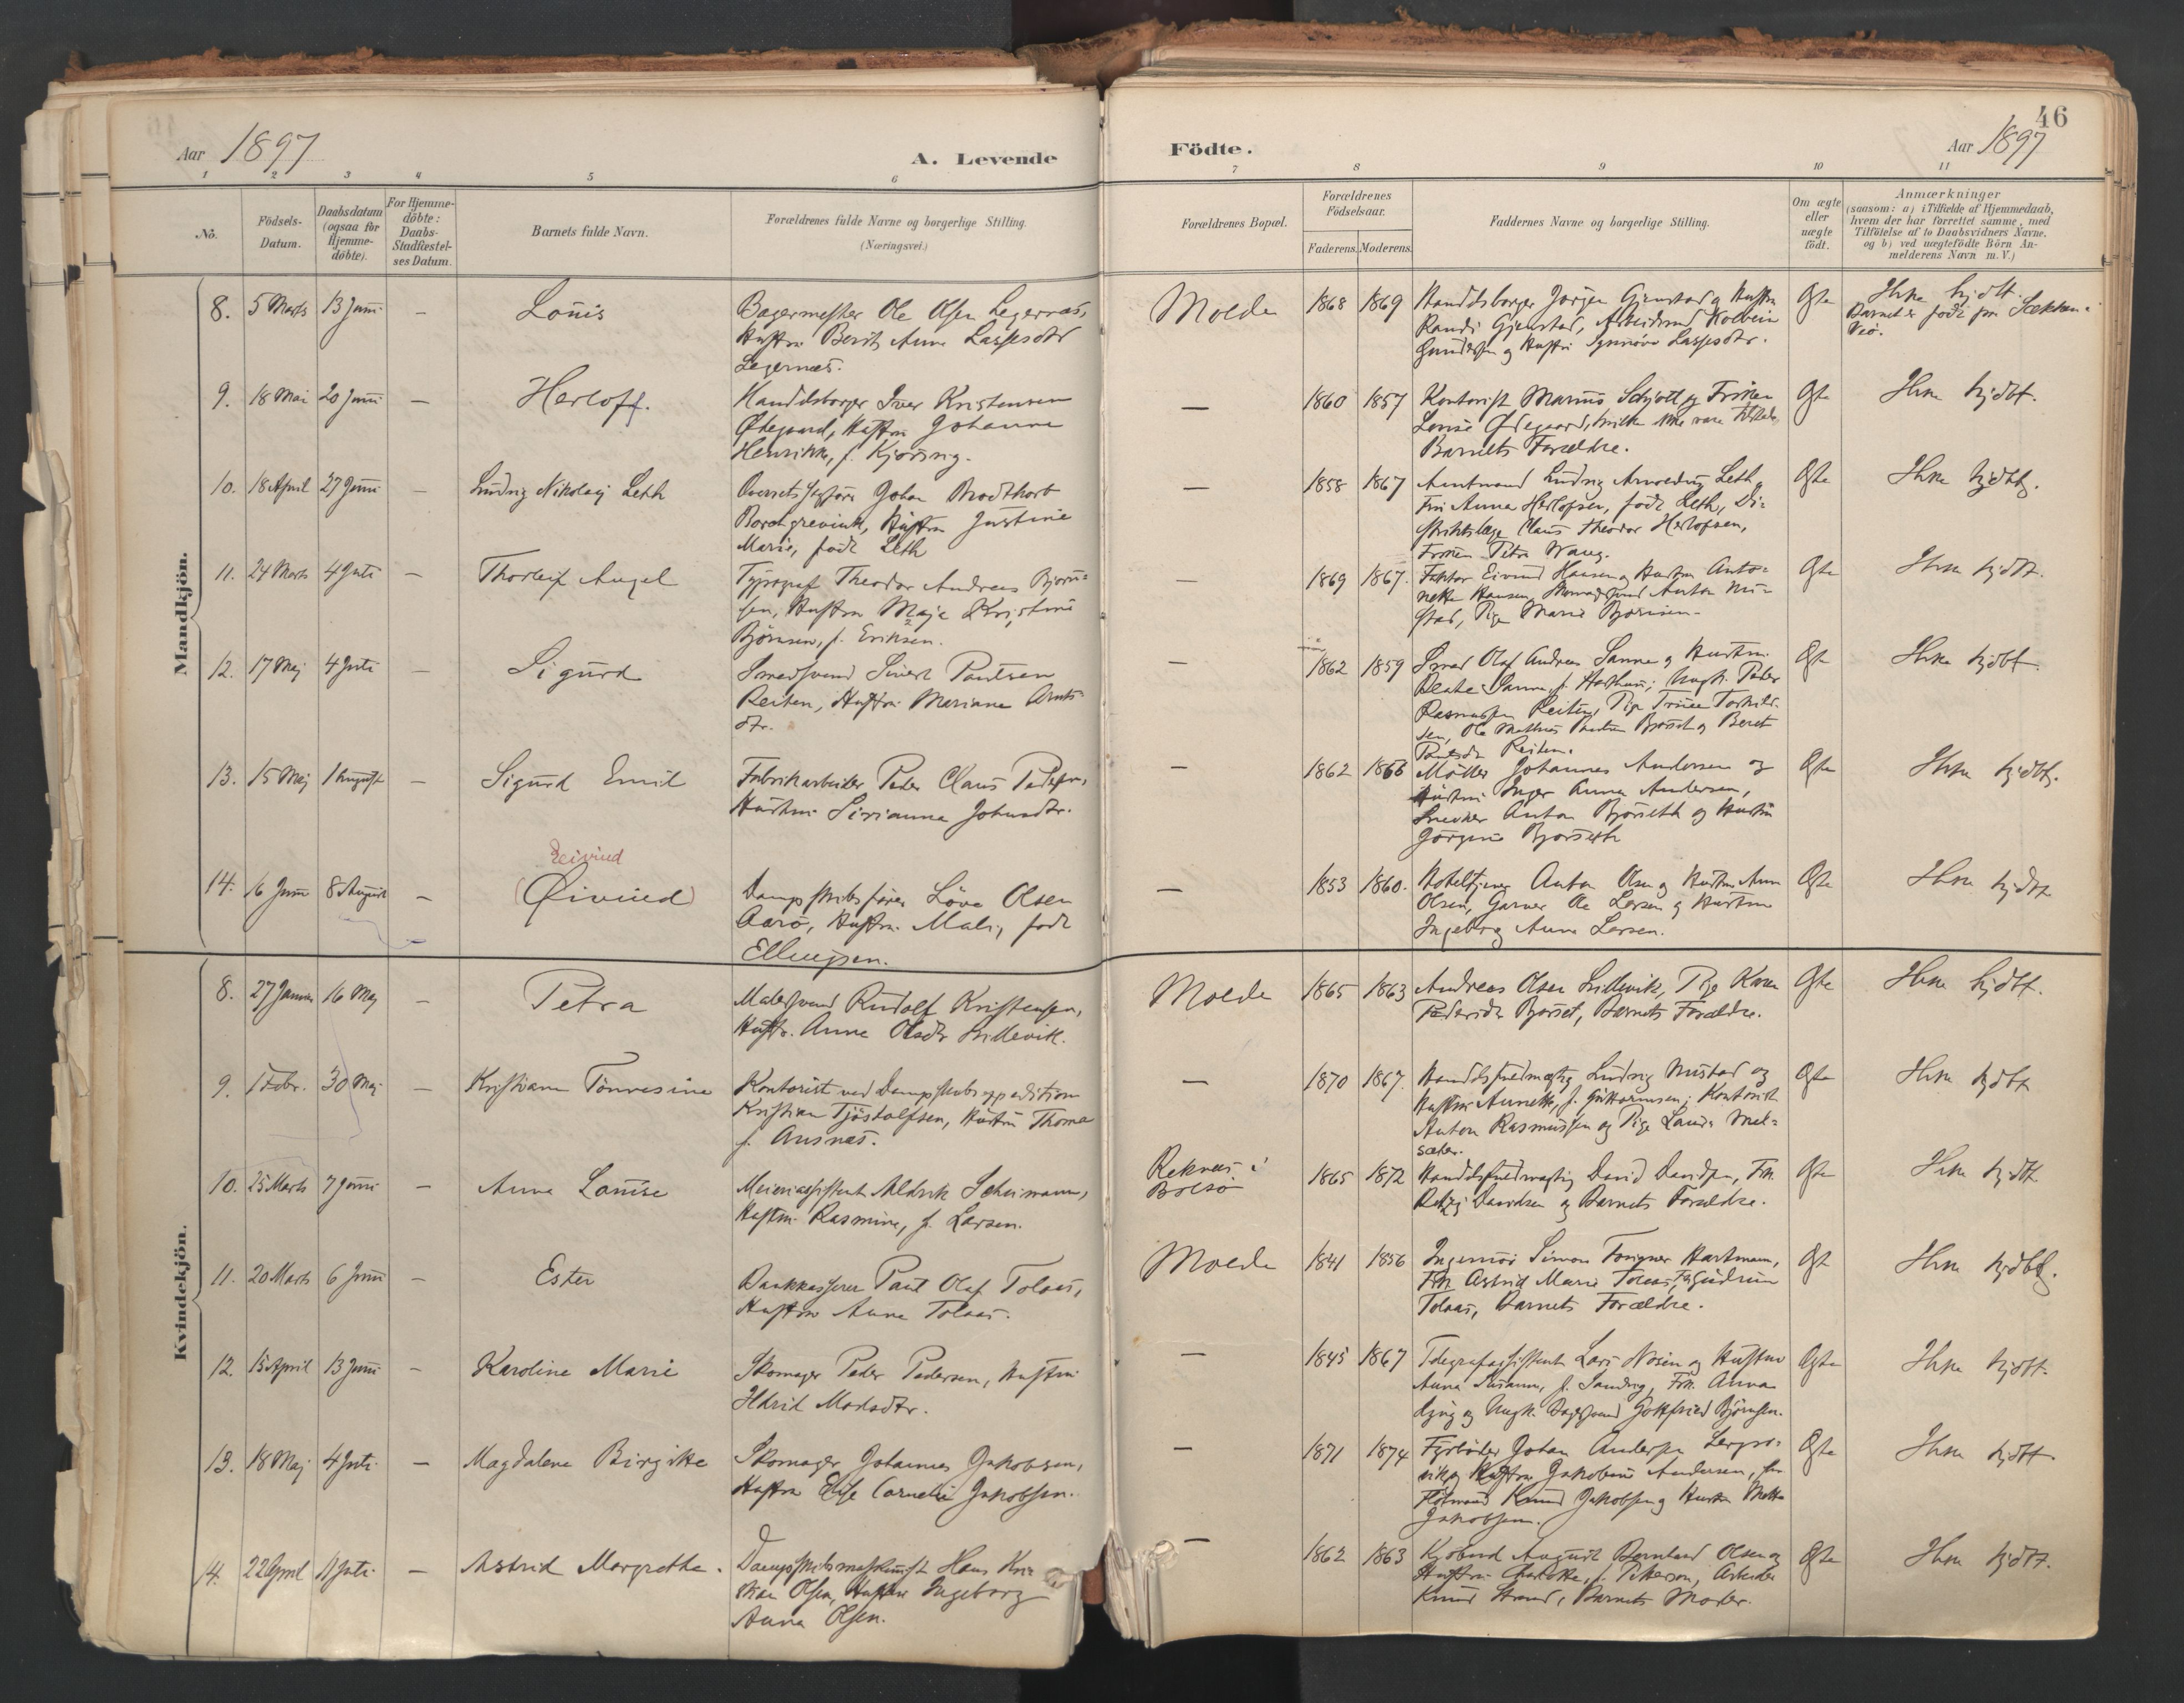 46
Aar 1897
A. Levende
Födte.
Aar 1897
1 2 3 4 5 6 7 8 9 10 11
No.
Födsels-
Datum.
Daabsdatum
(ogsaa for
Hjemme-
döbte).
For Hjemme-
döbte:
Daabs-
Stadfæstel-
ses Datum.
Barnets fulde Navn.
Forældrenes fulde Navne og borgerlige Stilling.
(Næringsvei.)
Forældrenes Bopæl.
Forældrenes
Födselsaar.
Faderens. Moderens.
Faddernes Navne og borgerlige Stilling.
Om ægte
eller
uægte
födt.
Anmærkninger
(saasom: a) i Tilfælde af Hjemmedaab,
hvem der har forrettet samme, med
Tilföielse af to Daabsvidners Navne,
og b) ved uægtefödte Börn An-
melderens Navn m.V.)
Mandkjön.
8. 5 Marts 13 Juni — Louis
Bagermester Ole Olsen Legernæs,
Hustru Berit Anna Lassesdtr
Legernæs.
Molde 1868 1869
Handelsborger Jörgen Gjenstad og Hustru
Randi Gjenstad, Arbeidsmd Kolbein
Gundersen og Hustru Synnöve Lassesdtr.
Ægte
Ikke hjdbt.
Barnet er född paa Sekken
Veö.
9. 18 Mai 20 Juni — Herloff.
Handelsborger Iver Kristensen
Ødegaard, Hustru Johanna
Henrikke, f.
— 1860 1857
Kontorist Marius Schjött og Fröken
Louise Ødegaard, hvilke ikke vare tilstede
Barnets Forældre.
Ægte Ikke hjdbt.
10. 18 April 27 Juni — Ludvig Nikolaj Leth
Overretssagförer Johan Brodtkorb
Borchgrevink, Hustru Justine
Marie, född Leth
— 1858 1867
Amtmand Ludvig Arnoldus Leth,
Fru Anna Herlofsen, född Leth, Di-
striktslæge Claus Theodor Herlofsen,
Fröken Petra Wang.
Ægte Ikke hjdbt.
11. 24 Marts 4 Juli — Thorleif Angel
Typograf Theodor Andreas Björn-
sen, Hustru Maja Kristine
Björnsen, f. Eriksen.
— 1869 1867.
Faktor Eivind Hansen og Hustru Anto-
nette Hansen, Anton Mu-
stad, Pige Marie Björnsen.
Ægte Ikke hjdbt.
12. 17 Maj 4 Juli — Sigurd
Smedsvend Sivert Paulsen
Reiten, Hustru Mariane Arnts-
dtr.
— 1862 1859
Smed Olaf Andreas Sanne og Hustru
Beate Sanne, Ungk. Peder
Rasmussen Reiten, Pige Trine Torkild-
sen, Ole Mathias og Beret
Reiten.
Ægte Ikke hjdbt.
13. 15 Maj 1 August — Sigurd Emil
Fabrikarbeider Peder Claus Pedersen,
Hustru Sirianna Johansdtr.
— 1862 1866
Möller Johannes Andersen og
Hustru Inger Anna Andersen,
Snedker Anton Björseth og Hustru
Jörgine Björseth
Ægte Ikke hjdbt.
14. 16 Juni 8 August —
Eivind
(Øivind)
Dampskibsförer Löve Olsen
Aarö, Hustru Mali, född
Ellingsen.
— 1853 1860.
Hoteltjener Anton Olsen og Hustru Anna
Olsen, Garver Ole Larsen og Hustru
Ingeborg Anna Larsen.
Ægte Ikke hjdbt
Kvindekjön.
8. 27 Januar 16 Maj — Petra
Malersvend Rudolf Kristensen,
Hustru Anna Olsdtr
Molde 1865 1863
Andreas Olsen Pige Karen
Pedersdtr Björset, Barnets Forældre.
Ægte Ikke hjdbt.
9. 1 Febr. 30 Maj — Kristiane Tönnesine
Kontorist ved Dampskibsexpedition
Kristian Tjöstolfsen, Hustru Thoma
f. Ausnæs.
— 1870 1867.
Handelsfuldmægtig Ludvig Mustad og
Hustru Annette, f. Guttormsen, Kontorist
Anton Rasmussen og Pige Laura Mel-
sæter.
Ægte Ikke hjdbt
10. 25 Marts 7 Juni — Anna Louise
Meieriassistent Aldrik Scheimann,
Hustru Rasmine, f. Larsen.
Reknæs i
Bolsö
1865 1872
Handelsfuldmægtig David Davidsen, Frk.
Davidsen og Barnets Forældre.
Ægte Ikke hjdbt
11. 20 Marts 6 Juni — Ester
Bankkasserer Paul Olaf Tolaas,
Hustru Anna Tolaas.
Molde 1841 1856
Ingeniör Simon Hartmann,
Frk. Astrid Marie Tolaas, Frk Gudrun
Tolaas, Barnets Forældre.
Ægte Ikke hjdbt.
12. 15 April 13 Juni — Karoline Marie
Skomager Peder Pedersen, Hustru
Madsdtr.
— 1845 1867
Telegrafassistent Lars og Hustru
Anna Susanna, f. Sandvig, Frk. Anna
og Ungk. Bagersvend Gottfried Björnsen.
Ægte Ikke hjdbt.
13. 18 Maj 4 Juli — Magdalena Birgitte
Skomager Johannes Jakobsen,
Hustru Else Cornelie Jakobsen.
— 1871 1874
Fyrböder Johan Andersen
og Hustru Jakobine Andersen,
Knud Jakobsen og Hustru Mette
Jakobsen.
Ægte Ikke hjdbt
14. 22 April 11 Juli — Astrid Margrethe.
Dampskibsmaskinist Hans Kri-
stian Olsen, Hustru Ingeborg
Anna Olsen.
— 1862 1863
Kjöbmd August Bernhard Olsen og
Hustru Charlotte, f. Peterson, Arbeider
Knud Strand, Barnets Moder.
Ægte Ikke hjdbt.